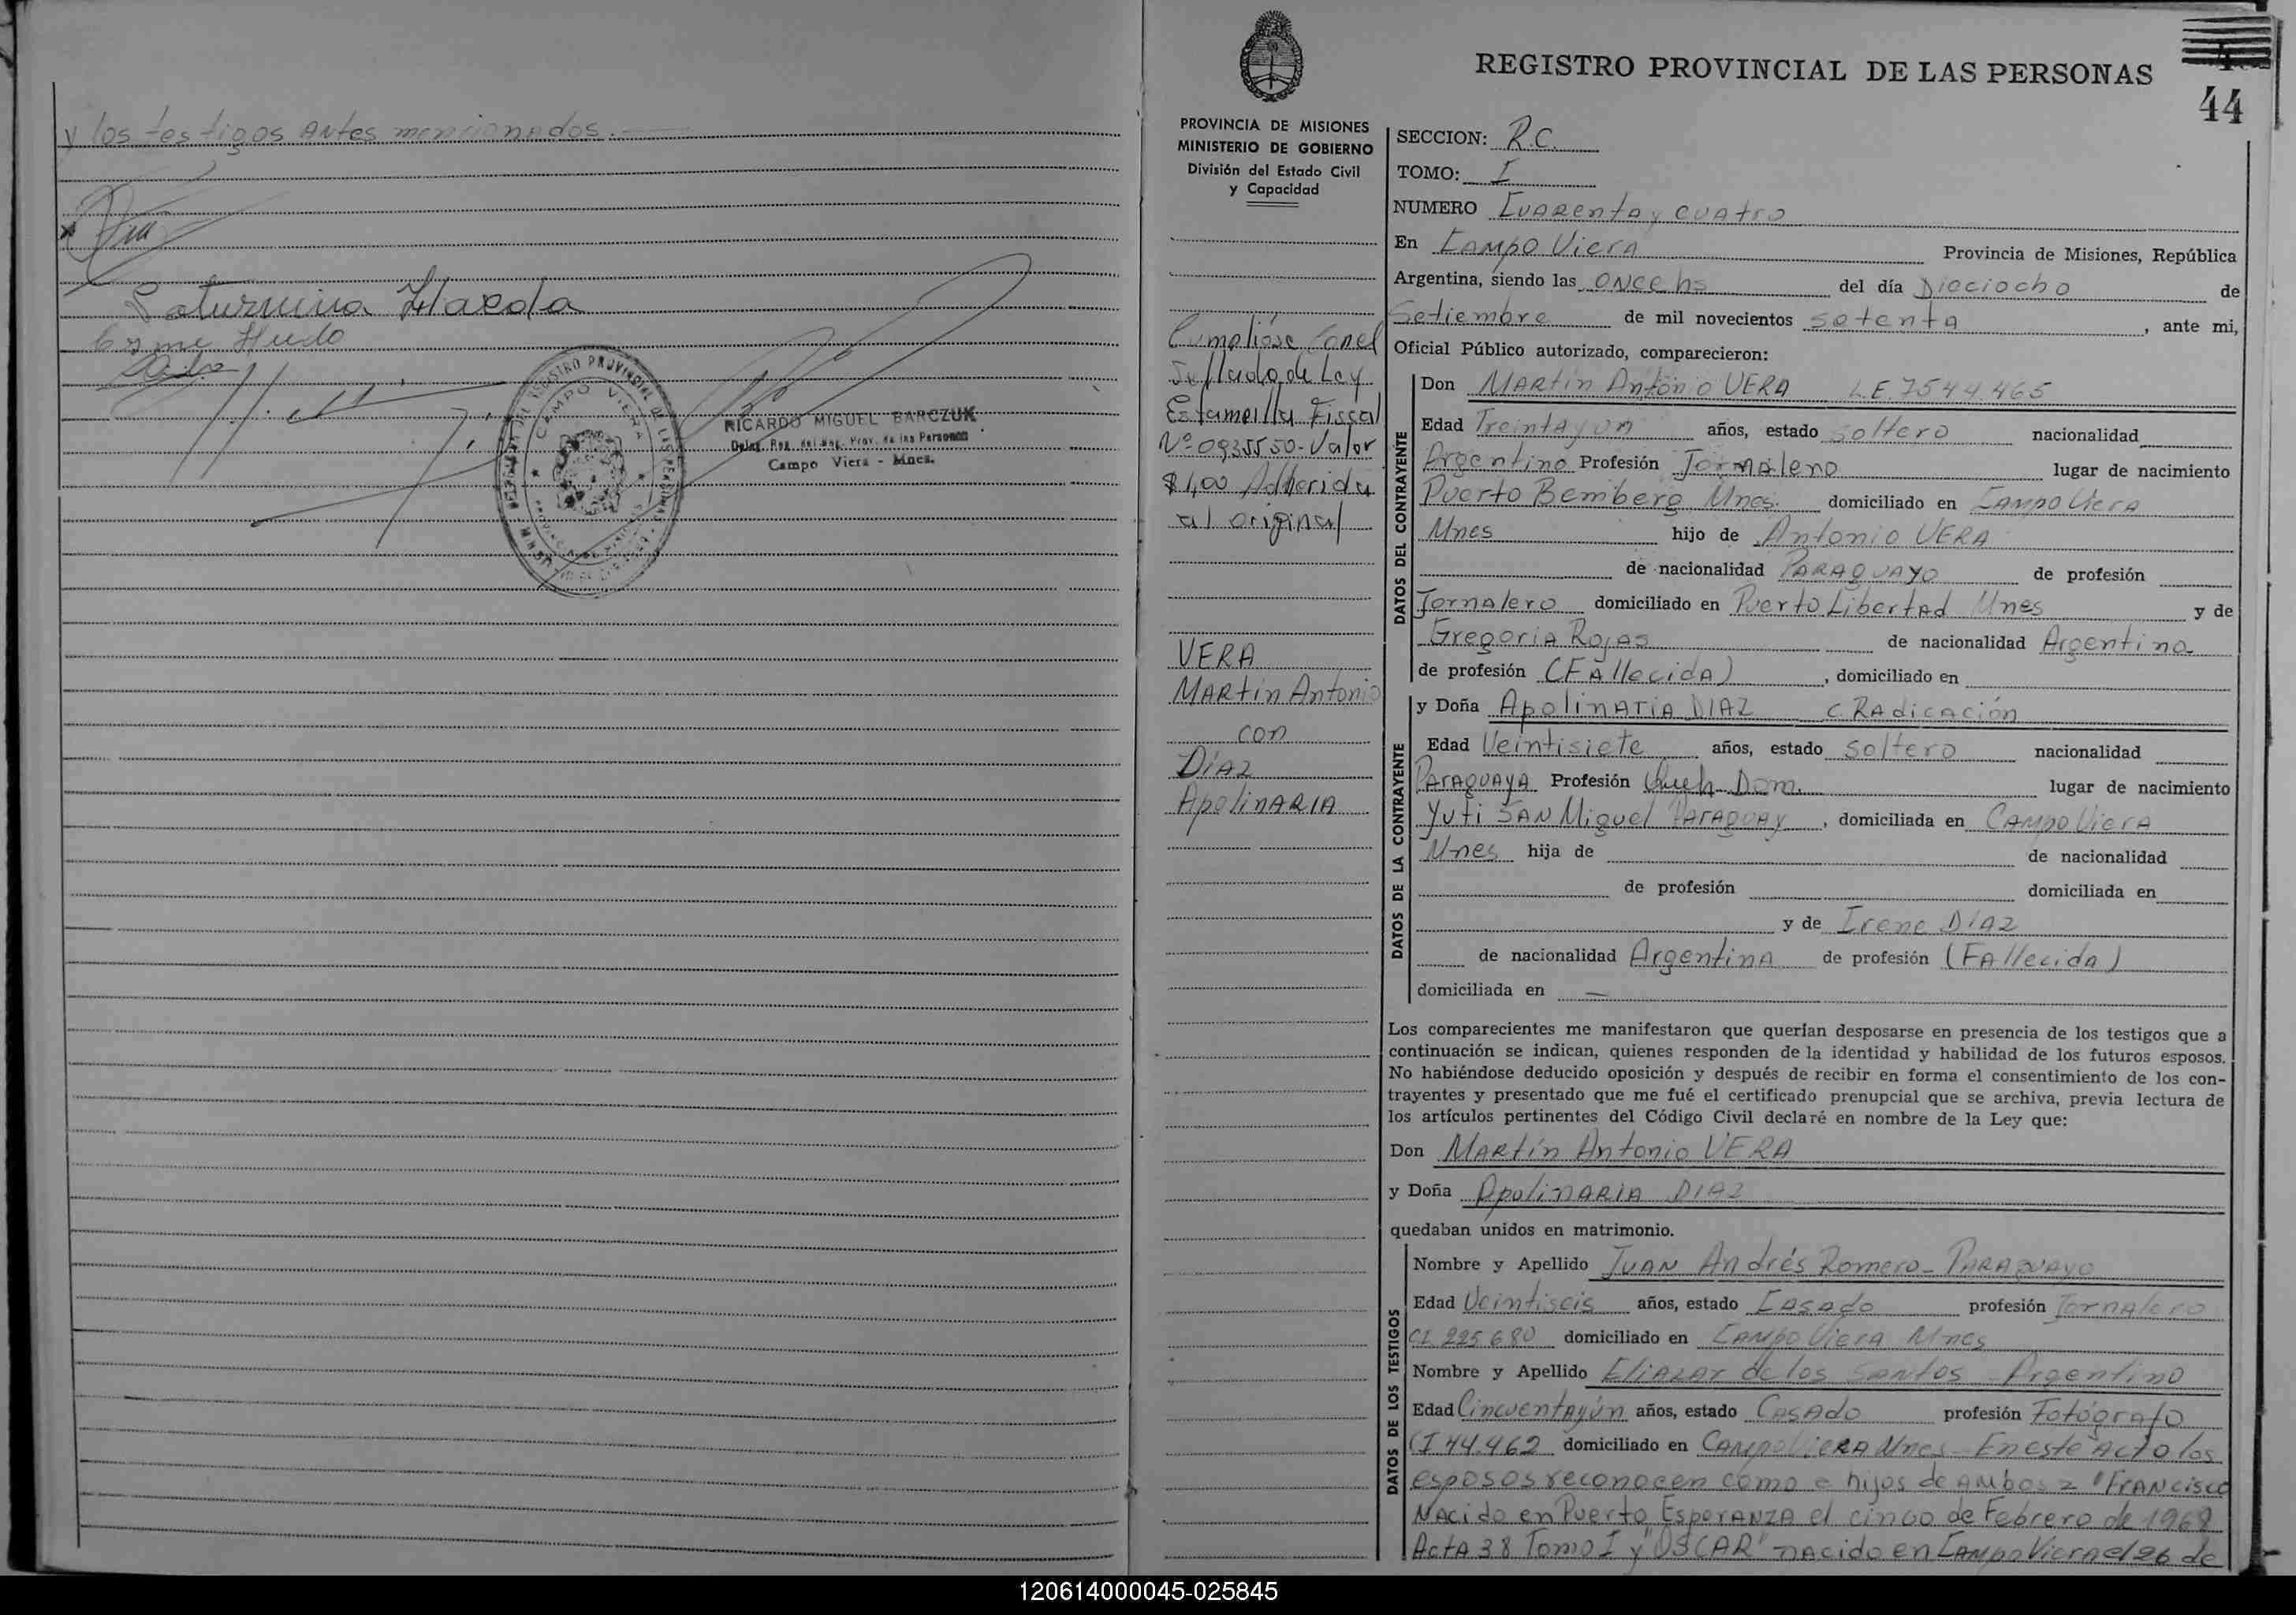 y los testigos antes mencionados.
Saturnina
RICARDO MIGUEL BARCZUK
Deleg. Reg. del Reg. Prov. de las Personas
Campo Viera - Mnes.
CAMPO VIERA
REGISTRO PROVINCIAL DE LAS PERSONAS
44
PROVINCIA DE MISIONES
MINISTERIO DE GOBIERNO
División del Estado Civil
y Capacidad
Cumplióse con el
Sellado de Ley
Estampilla Fiscal
Nº 0935550 - Valor
$ 1,00 Adherida
al original
VERA
MARtín Antonio
con
DíAZ
ApolinARIA
SECCION: R.C.
TOMO: I
NUMERO Cuarenta y cuatro
En Campo Viera Provincia de Misiones, República
Argentina, siendo las once hs del día Dieciocho de
Setiembre de mil novecientos setenta, ante mi,
Oficial Público autorizado, comparecieron:
DATOS DEL CONTRAYENTE
Don MARtín António VERA L.E. 7544.465
Edad Treinta y un años, estado soltero nacionalidad
Argentino Profesión Jornalero lugar de nacimiento
Puerto Bemberg Mnes. domiciliado en Campo Viera
Mnes hijo de Antonio VERA
de nacionalidad PARAGUAYO de profesión
Jornalero domiciliado en Puerto Libertad Mnes y de
Gregoria Rojas de nacionalidad Argentina
de profesión (Fallecida), domiciliado en
DATOS DE LA CONTRAYENTE
y Doña ApolinARIA DIAZ C. Radicación
Edad Veintisiete años, estado soltero nacionalidad
Paraguaya Profesión Queh. Dom. lugar de nacimiento
Yuti San Miguel Paraguay, domiciliada en Campo Viera
Mnes hija de de nacionalidad
de profesión domiciliada en
y de Irene Díaz
de nacionalidad Argentina de profesión (Fallecida)
domiciliada en —
Los comparecientes me manifestaron que querían desposarse en presencia de los testigos que a
continuación se indican, quienes responden de la identidad y habilidad de los futuros esposos.
No habiéndose deducido oposición y después de recibir en forma el consentimiento de los con-
trayentes y presentado que me fué el certificado prenupcial que se archiva, previa lectura de
los artículos pertinentes del Código Civil declaré en nombre de la Ley que:
Don MARtín Antonio VERA
y Doña ApolinARIA DIAZ
quedaban unidos en matrimonio.
DATOS DE LOS TESTIGOS
Nombre y Apellido Juan Andrés Romero - Paraguayo
Edad Veintiseis años, estado Casado profesión Jornalero
CI. 225.680 domiciliado en Campo Viera Mnes
Nombre y Apellido Eliazar de los Santos - Argentino
Edad Cincuenta y un años, estado Casado profesión Fotógrafo
CI 44.462 domiciliado en Campo Viera Mnes - En este acto los
esposos reconocen como hijos de ambos a "Francisco
Nacido en Puerto Esperanza el cinco de Febrero de 1968
Acta 38 Tomo I y "OSCAR" nacido en Campo Viera el 26 de
120614000045-025845